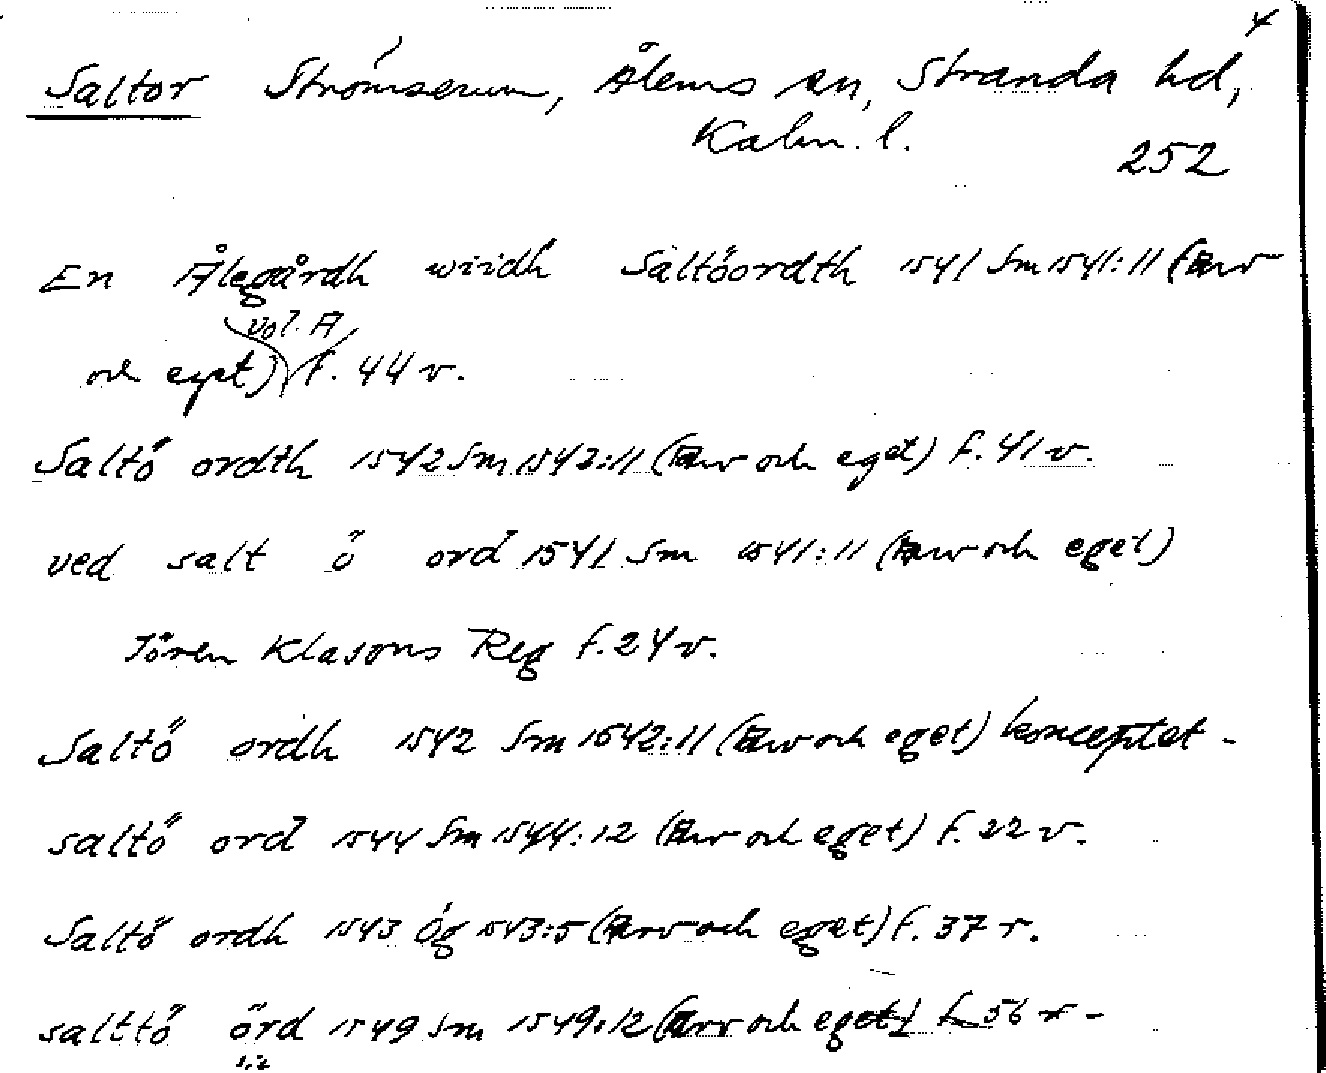 Saltor Strömserum, Ålems sn, Stranda hd,
Kalm. l.
252
En Ålegårdh wiidh Saltöordth 1541 Sm 1541:11 (Arv
vol. A
och eget) f. 44 v.
Saltö ordth 1542 Sm 1542:11 (Arv och eget) f. 41 v.
ved salt ö ord 1541 Sm 1541:11 (Arv och eget)
Jören Klasons Reg f. 24 v.
Saltö ordh 1542 Sm 1542:11 (Arv och eget) konceptet -
saltö ord 1544 Sm 1544:12 (Arv och eget) f. 22 v.
Saltö ordh 1543 Ög 1543:5 (Arv och eget) f. 37 r.
salttö örd 1549 Sm 1549:12 (Arv och eget) f. 56 r -